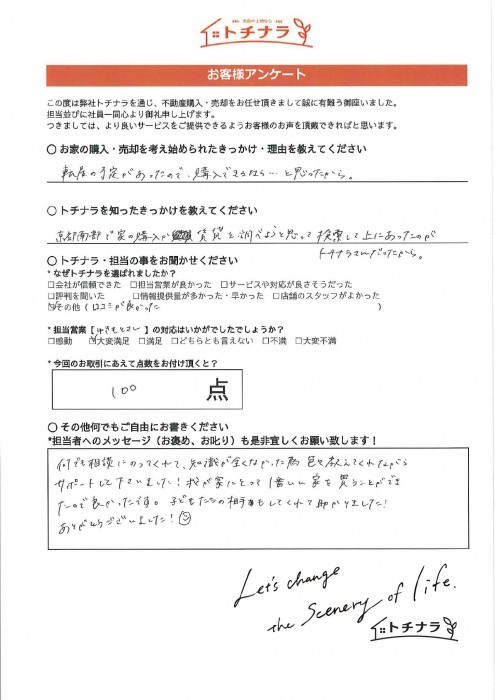 トチナラ
お客様アンケート
この度は弊社トチナラを通じ、不動産購入・売却をお任せ頂きまして誠に有難う御座いました。
担当並びに社員一同心より御礼申し上げます。
つきましては、より良いサービスをご提供できるようお客様のお声を頂戴できればと思います。
〇 お家の購入・売却を考え始められたきっかけ・理由を教えてください
転居の予定があったので、購入できるなら…と思ったから。
〇 トチナラを知ったきっかけを教えてください
京都南部で家の購入か 賃貸を調べようと思って 検索して上にあったのが
トチナラさんだったから。
〇 トチナラ・担当の事をお聞かせください
* なぜトチナラを選ばれましたか？
□会社が信頼できた □担当営業が良かった □サービスや対応が良さそうだった
□評判を聞いた □情報提供量が多かった・早かった □店舗のスタッフがよかった
☑その他（口コミが良かった ）
* 担当営業【 】の対応はいかがでしたでしょうか？
□感動 ☑大変満足 □満足 □どちらとも言えない □不満 □大変不満
* 今回のお取引にあえて点数をお付け頂くと？
100 点
〇 その他何でもご自由にお書きください
*担当者へのメッセージ（お褒め、お叱り）も是非宜しくお願い致します！
何でも相談にのってくれて、知識が全くなかった為 色々教えてくれながら
サポートして下さいました！我が家にとって1番いい家を買うことができ
たので良かったです。子どもたちの相手もしてくれて助かりました！
ありがとうございました！
Let's change
the scenery of life.
トチナラ